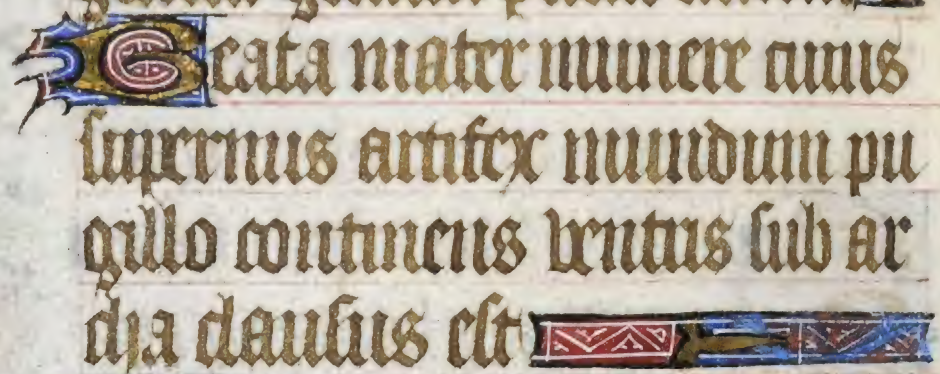 Beata mater munere cuius
supernus artifex mundum pu
gillo continens ventris sub ar
cha clausus est